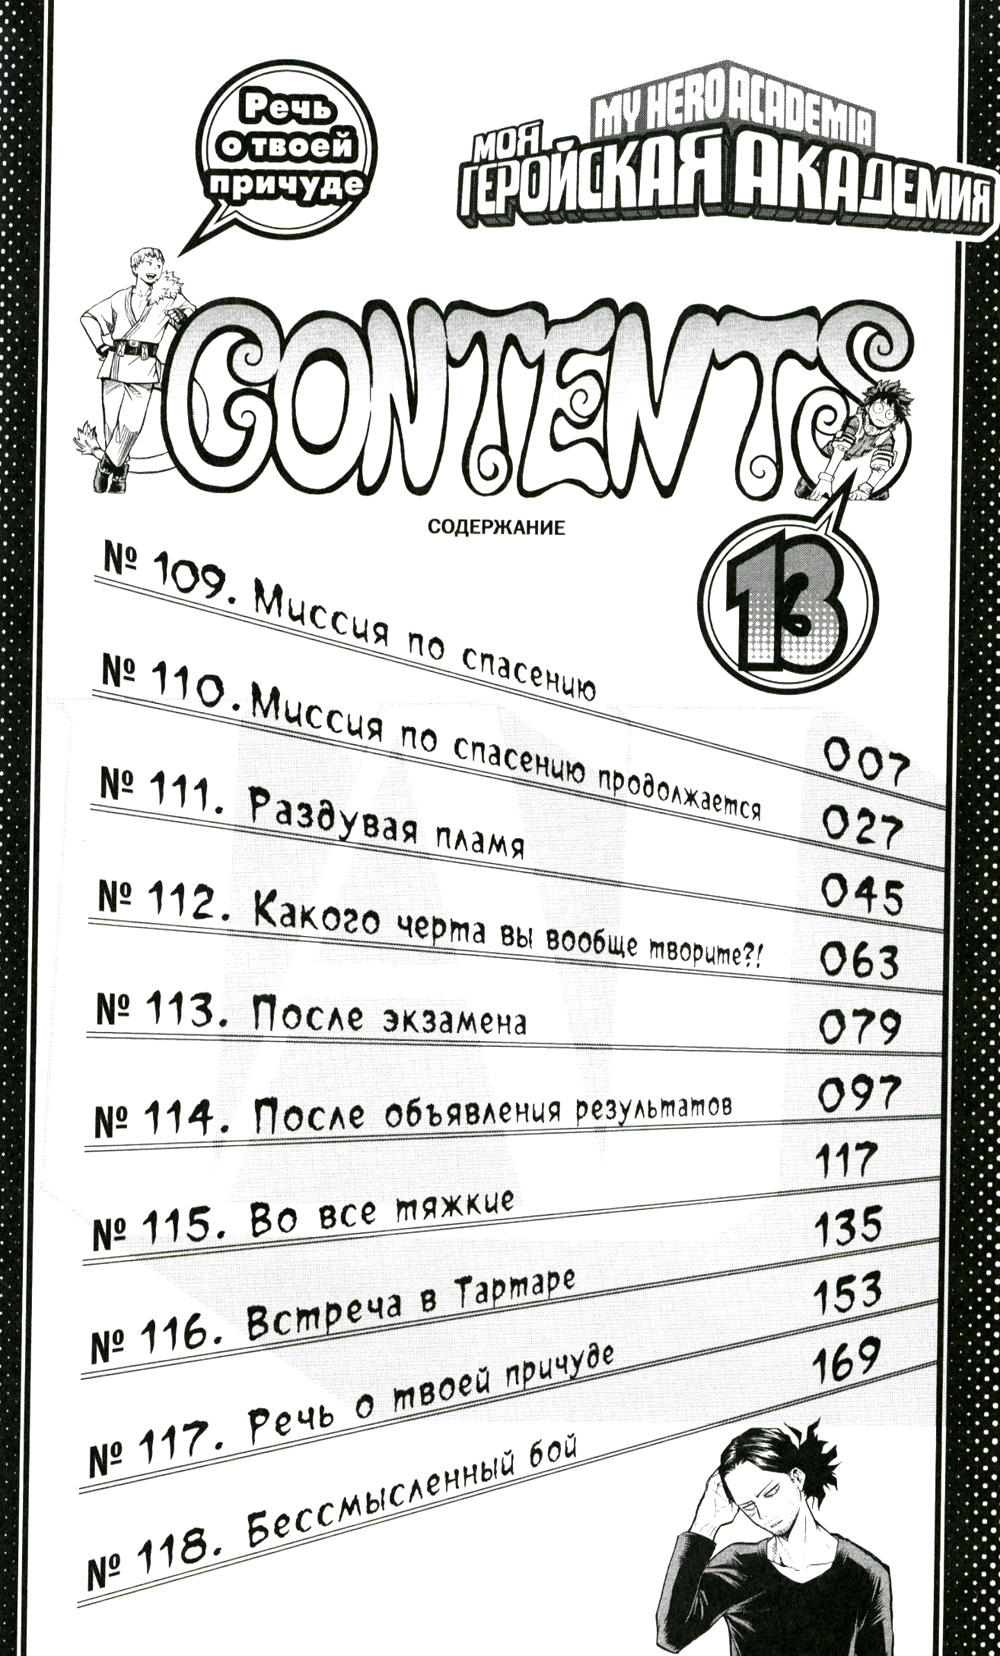 Речь
о твоей
причуде
MY HERO ACADEMIA
МОЯ
ГЕРОЙСКАЯ АКАДЕМИЯ
CONTENTS
СОДЕРЖАНИЕ
13
№ 109. Миссия по спасению 007
№ 110. Миссия по спасению продолжается 027
№ 111. Раздувая пламя 045
№ 112. Какого черта вы вообще творите?! 063
№ 113. После экзамена 079
№ 114. После объявления результатов 097
№ 115. Во все тяжкие 117
№ 116. Встреча в Тартаре 135
№ 117. Речь о твоей причуде 153
№ 118. Бессмысленный бой 169